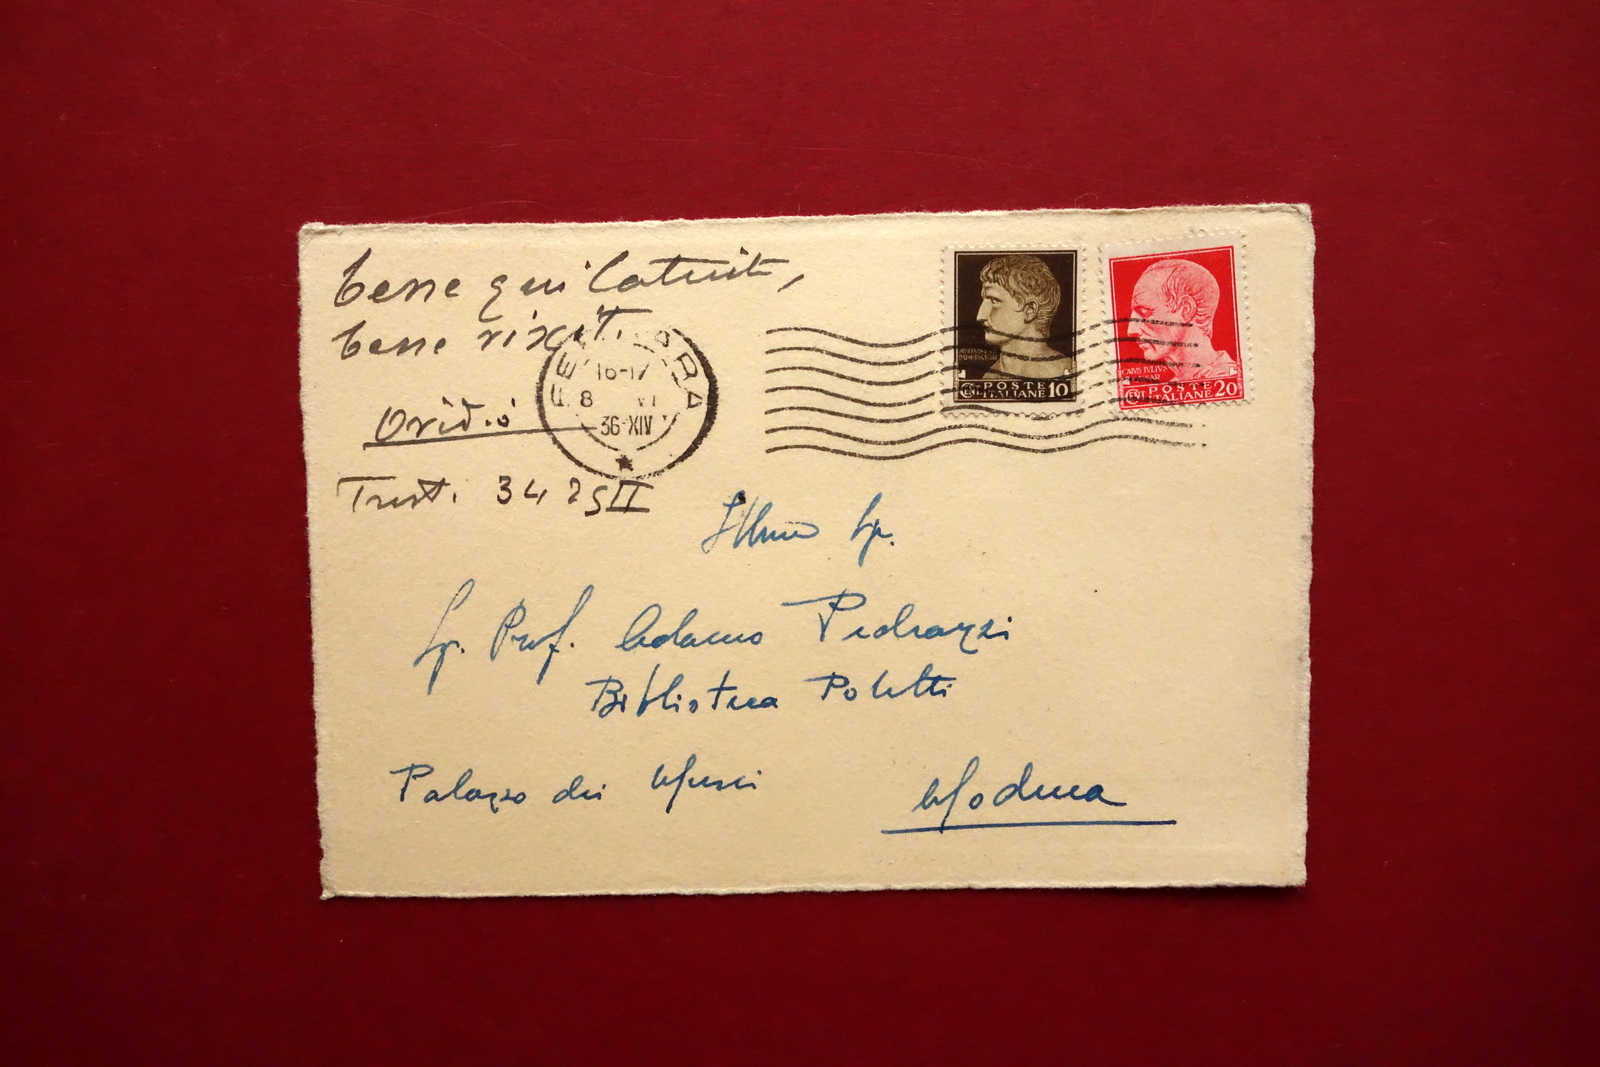 bene qui latuit,
bene vixit.
Ovidio
Trist. 3 4 25 II
FERRARA
16-17
8 VI
36-XIV
AVGVSTO
IMPERATOR
POSTE
ITALIANE 10
CAIVS IVLIVS
CAESAR
POSTE
ITALIANE 20
Illmo Sg.
Sg. Prof. Adamo Pedrazzi
Biblioteca Poletti
Palazzo dei Musei
Modena